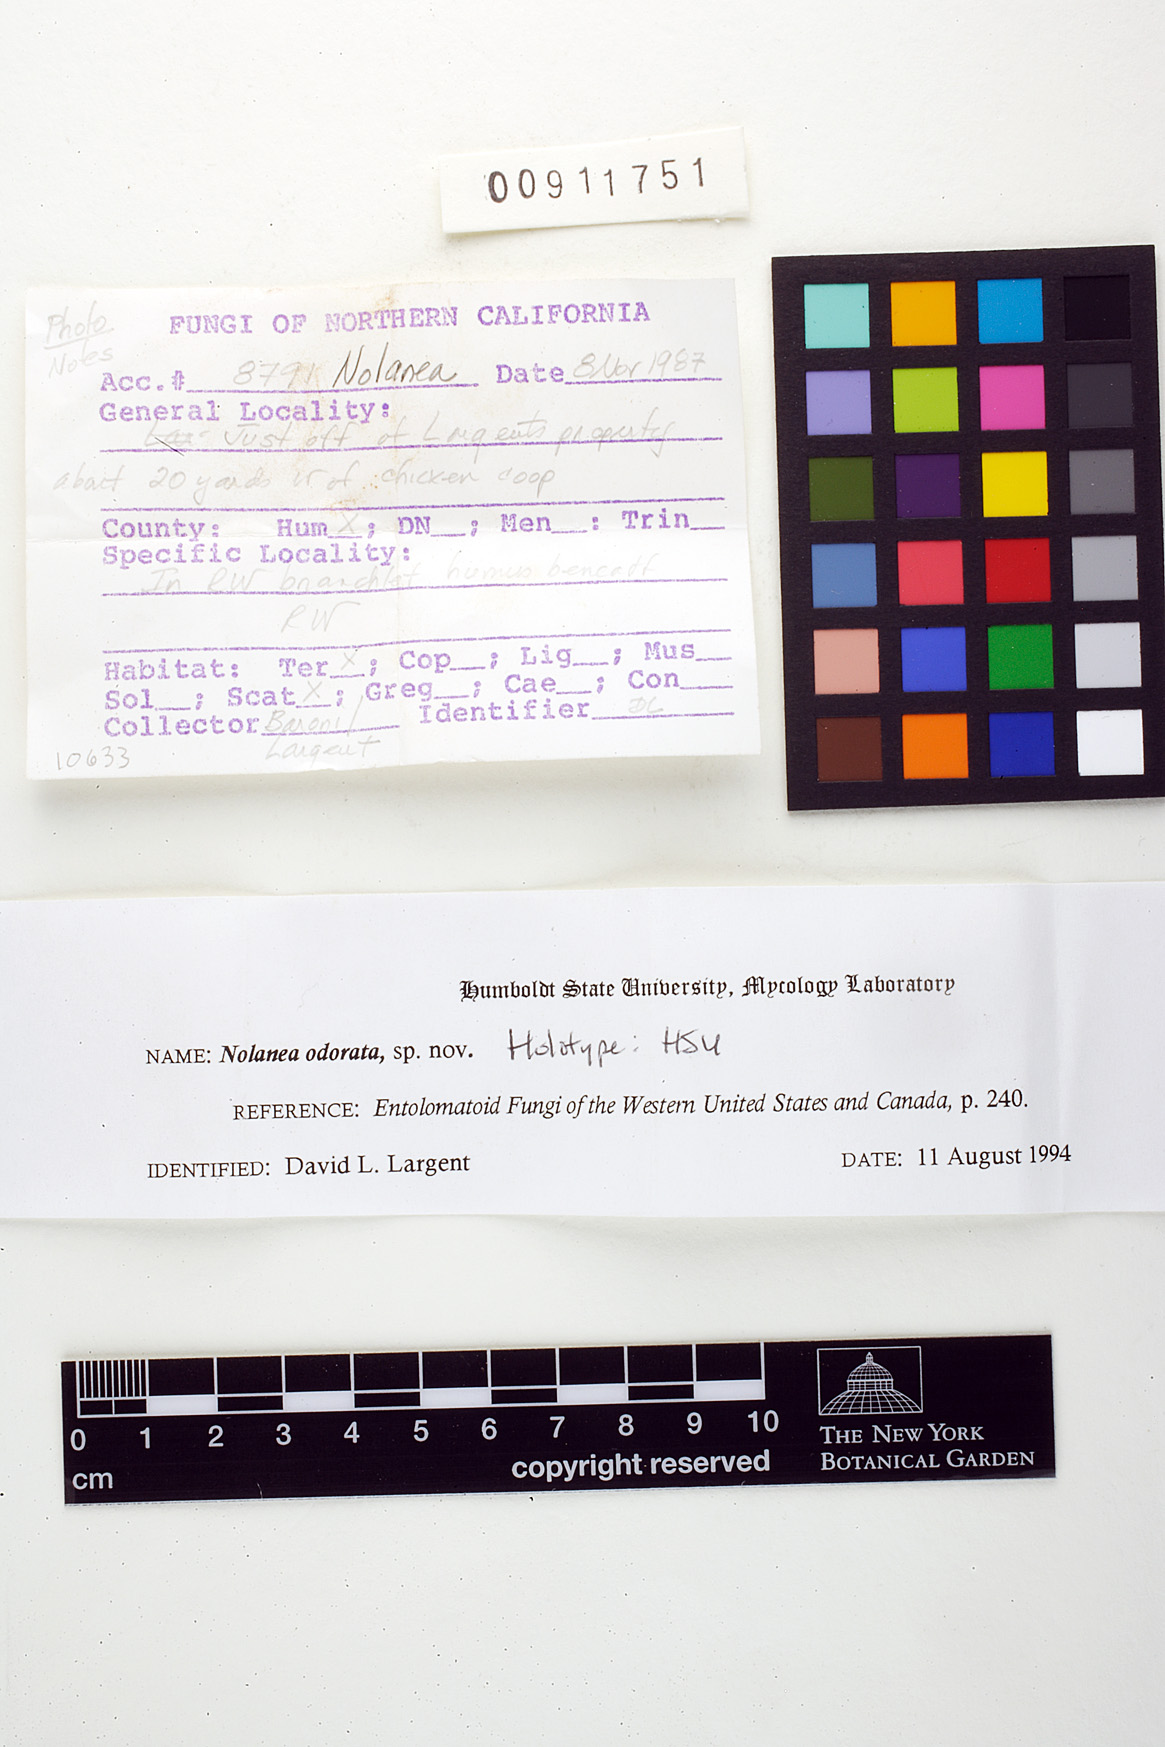 00911751
Photo
Notes
FUNGI OF NORTHERN CALIFORNIA
Acc.# 8791 Nolanea Date 8 Nov 1987
General Locality:
Just off of Largents property
about 20 yards W of chicken coop
County: Hum X; DN__; Men__: Trin__
Specific Locality:
In RW branchlet humus beneath
RW
Habitat: Ter X; Cop__; Lig__; Mus__
Sol__; Scat X; Greg__; Cae__; Con__
Collector Baroni/ Identifier DL
Largent
10633
Humboldt State University, Mycology Laboratory
NAME: Nolanea odorata, sp. nov. Holotype: HSU
REFERENCE: Entolomatoid Fungi of the Western United States and Canada, p. 240.
IDENTIFIED: David L. Largent DATE: 11 August 1994
0 1 2 3 4 5 6 7 8 9 10
cm
copyright reserved
THE NEW YORK
BOTANICAL GARDEN